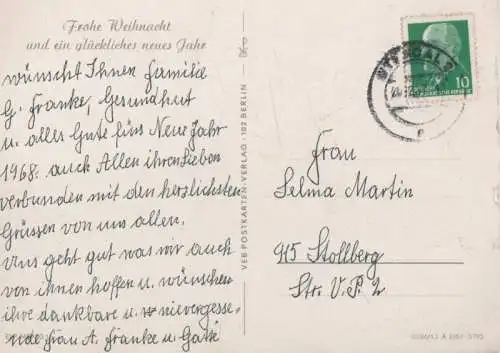 Frohe Weihnacht
und ein glückliches neues Jahr
wünscht Ihnen Familie
G. Franke, Gesundheit
u. alles Gute fürs Neue Jahr
1968. auch Allen ihren Lieben
verbunden mit den herzlichsten
Grüssen von uns allen.
Uns geht gut was wir auch
von ihnen hoffen u. wünschen
ihre dankbare u. nievergesse-
nde Frau A. Franke u.
VEB POSTKARTEN-VERLAG · 102 BERLIN
10
Frau
Selma Martin
915 Stollberg
Str. V. P. 2